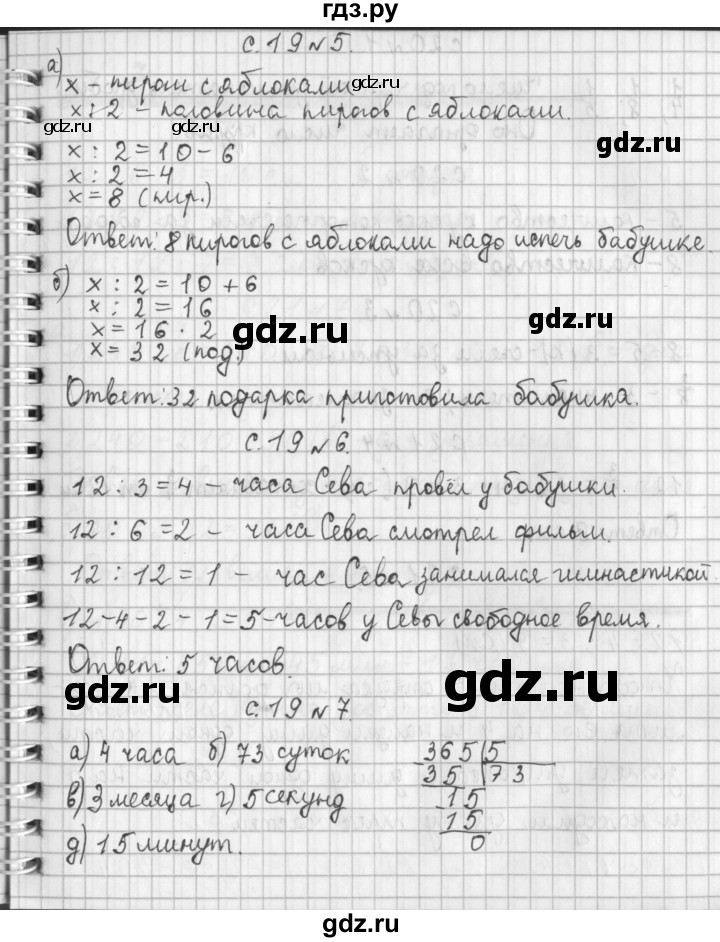 гдз.ру
с.19 №5.
а)
x – пироги с яблоками
x : 2 – половина пирогов с яблоками.
gdz.ru gdz.ru
gdz.ru
x : 2 = 10 – 6
x : 2 = 4
x = 8 (пир.)
Ответ: 8 пирогов с яблоками надо испечь бабушке.
б) x : 2 = 10 + 6
x : 2 = 16
x = 16 · 2
x = 32 (под.)
gdz.ru gdz.ru
Ответ: 32 подарка приготовила бабушка.
с.19 №6.
12 : 3 = 4 – часа Сева провёл у бабушки.
12 : 6 = 2 – часа Сева смотрел фильм.
12 : 12 = 1 – час Сева занимался гимнастикой.
12 – 4 – 2 – 1 = 5 – часов у Севы свободное время.
Ответ: 5 часов.
gdz.ru gdz.ru
с.19 №7.
а) 4 часа б) 73 суток
в) 3 месяца г) 5 секунд
д) 15 минут.
365 5
35 73
15
15
0
gdz.ru gdz.ru
гдз.ру